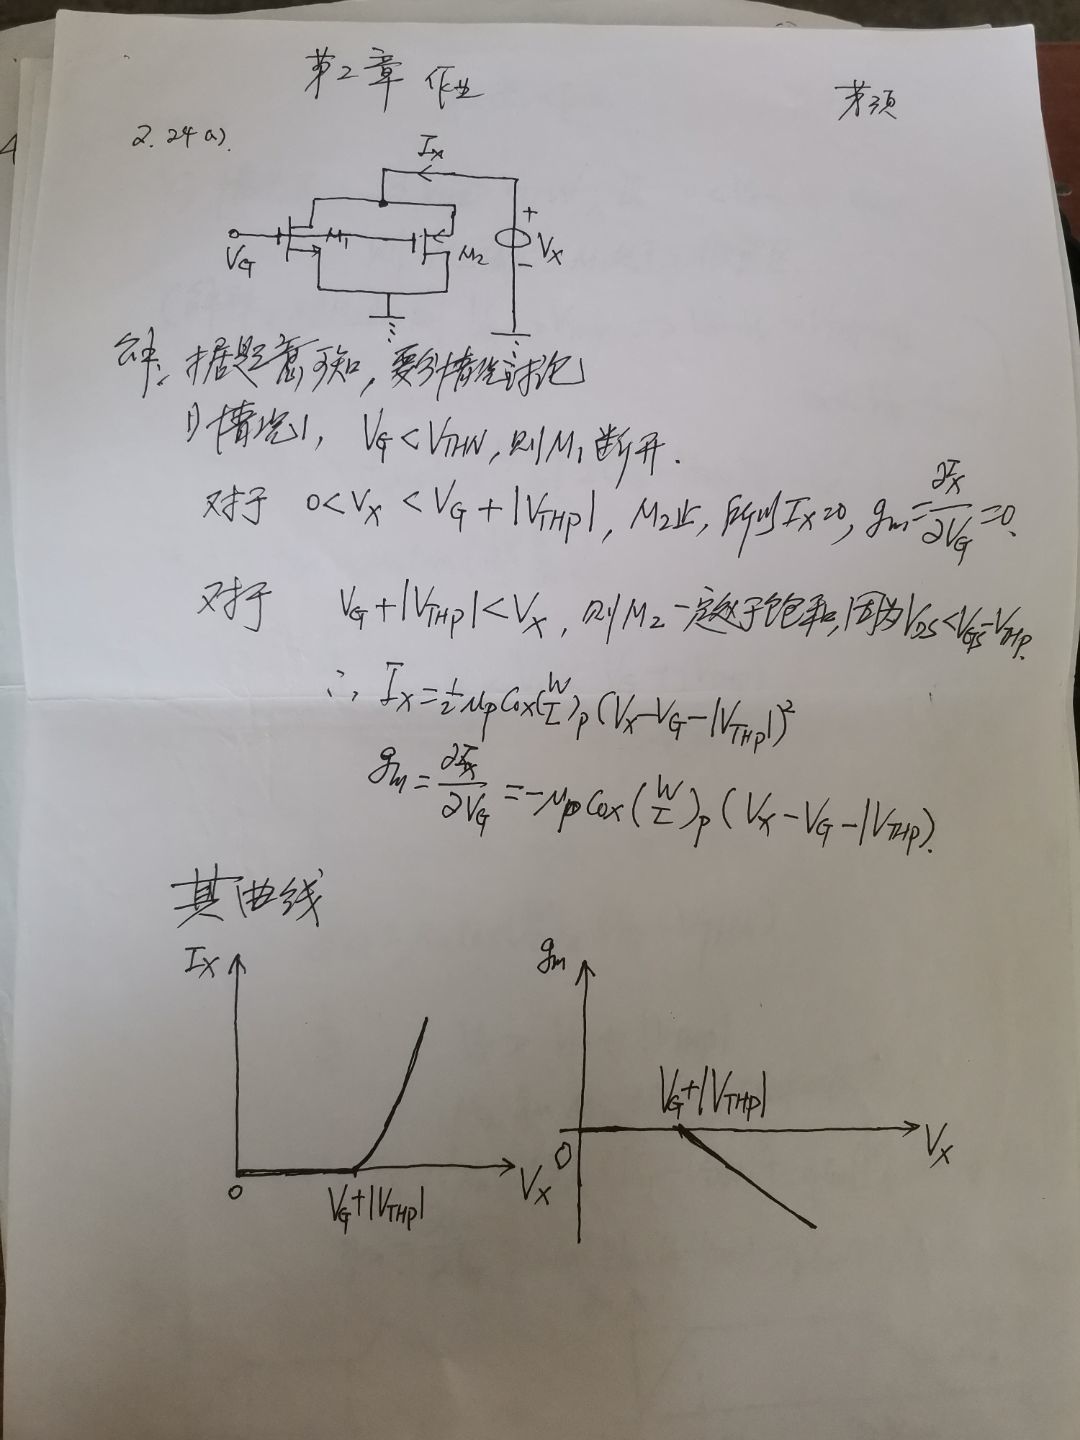 第2章 作业
第3页
2.24 a).
Ix
VG
M1
M2
+
Vx
-
解: 据题意可知, 要分情况讨论
1) 情况1, VG < VTHN, 则M1断开.
对于 0<Vx <VG+|VTHP|, M2止, 所以Ix=0, gm=∂Ix/∂VG=0.
对于 VG+|VTHP|<Vx, 则M2一定处于饱和, 因为VDS<VGS-VTHP.
∴ Ix=½μpCox(W/L)p(Vx-VG-|VTHP|)²
gm=∂Ix/∂VG=-μpCox(W/L)p(Vx-VG-|VTHP|).
其曲线
Ix
gm
VG+|VTHP|
0
Vx
0
Vx
VG+|VTHP|